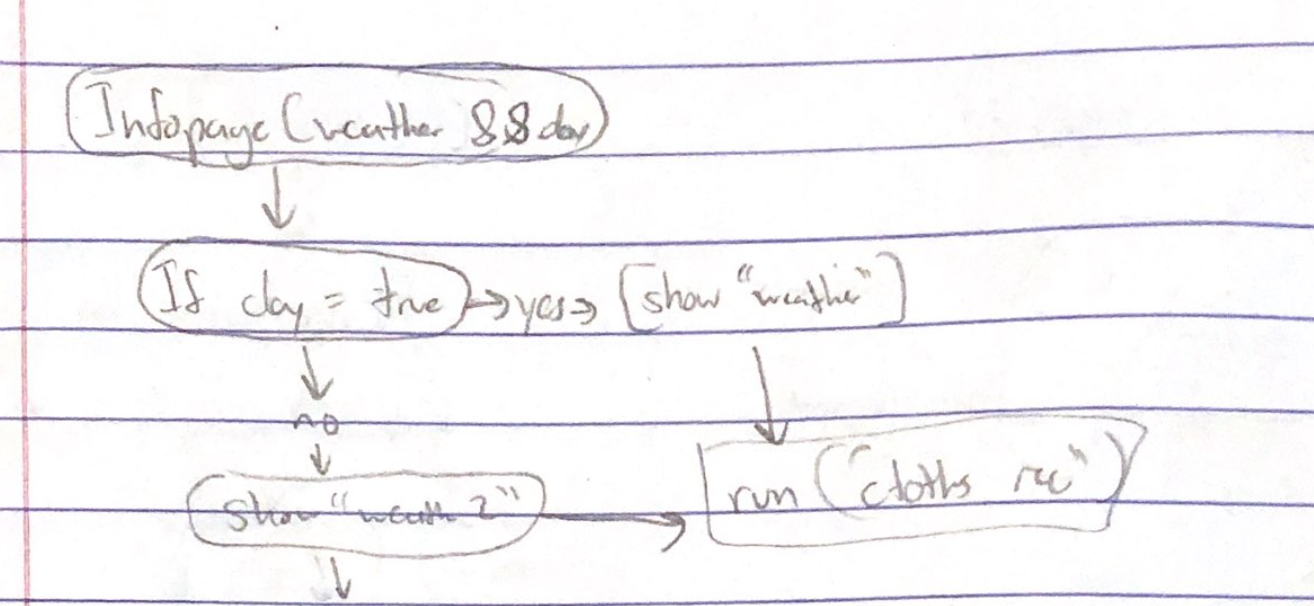 Infopage (weather && day)
If day = true → yes → [show "weather"]
no
show "weath 2"
run ("cloths rec")